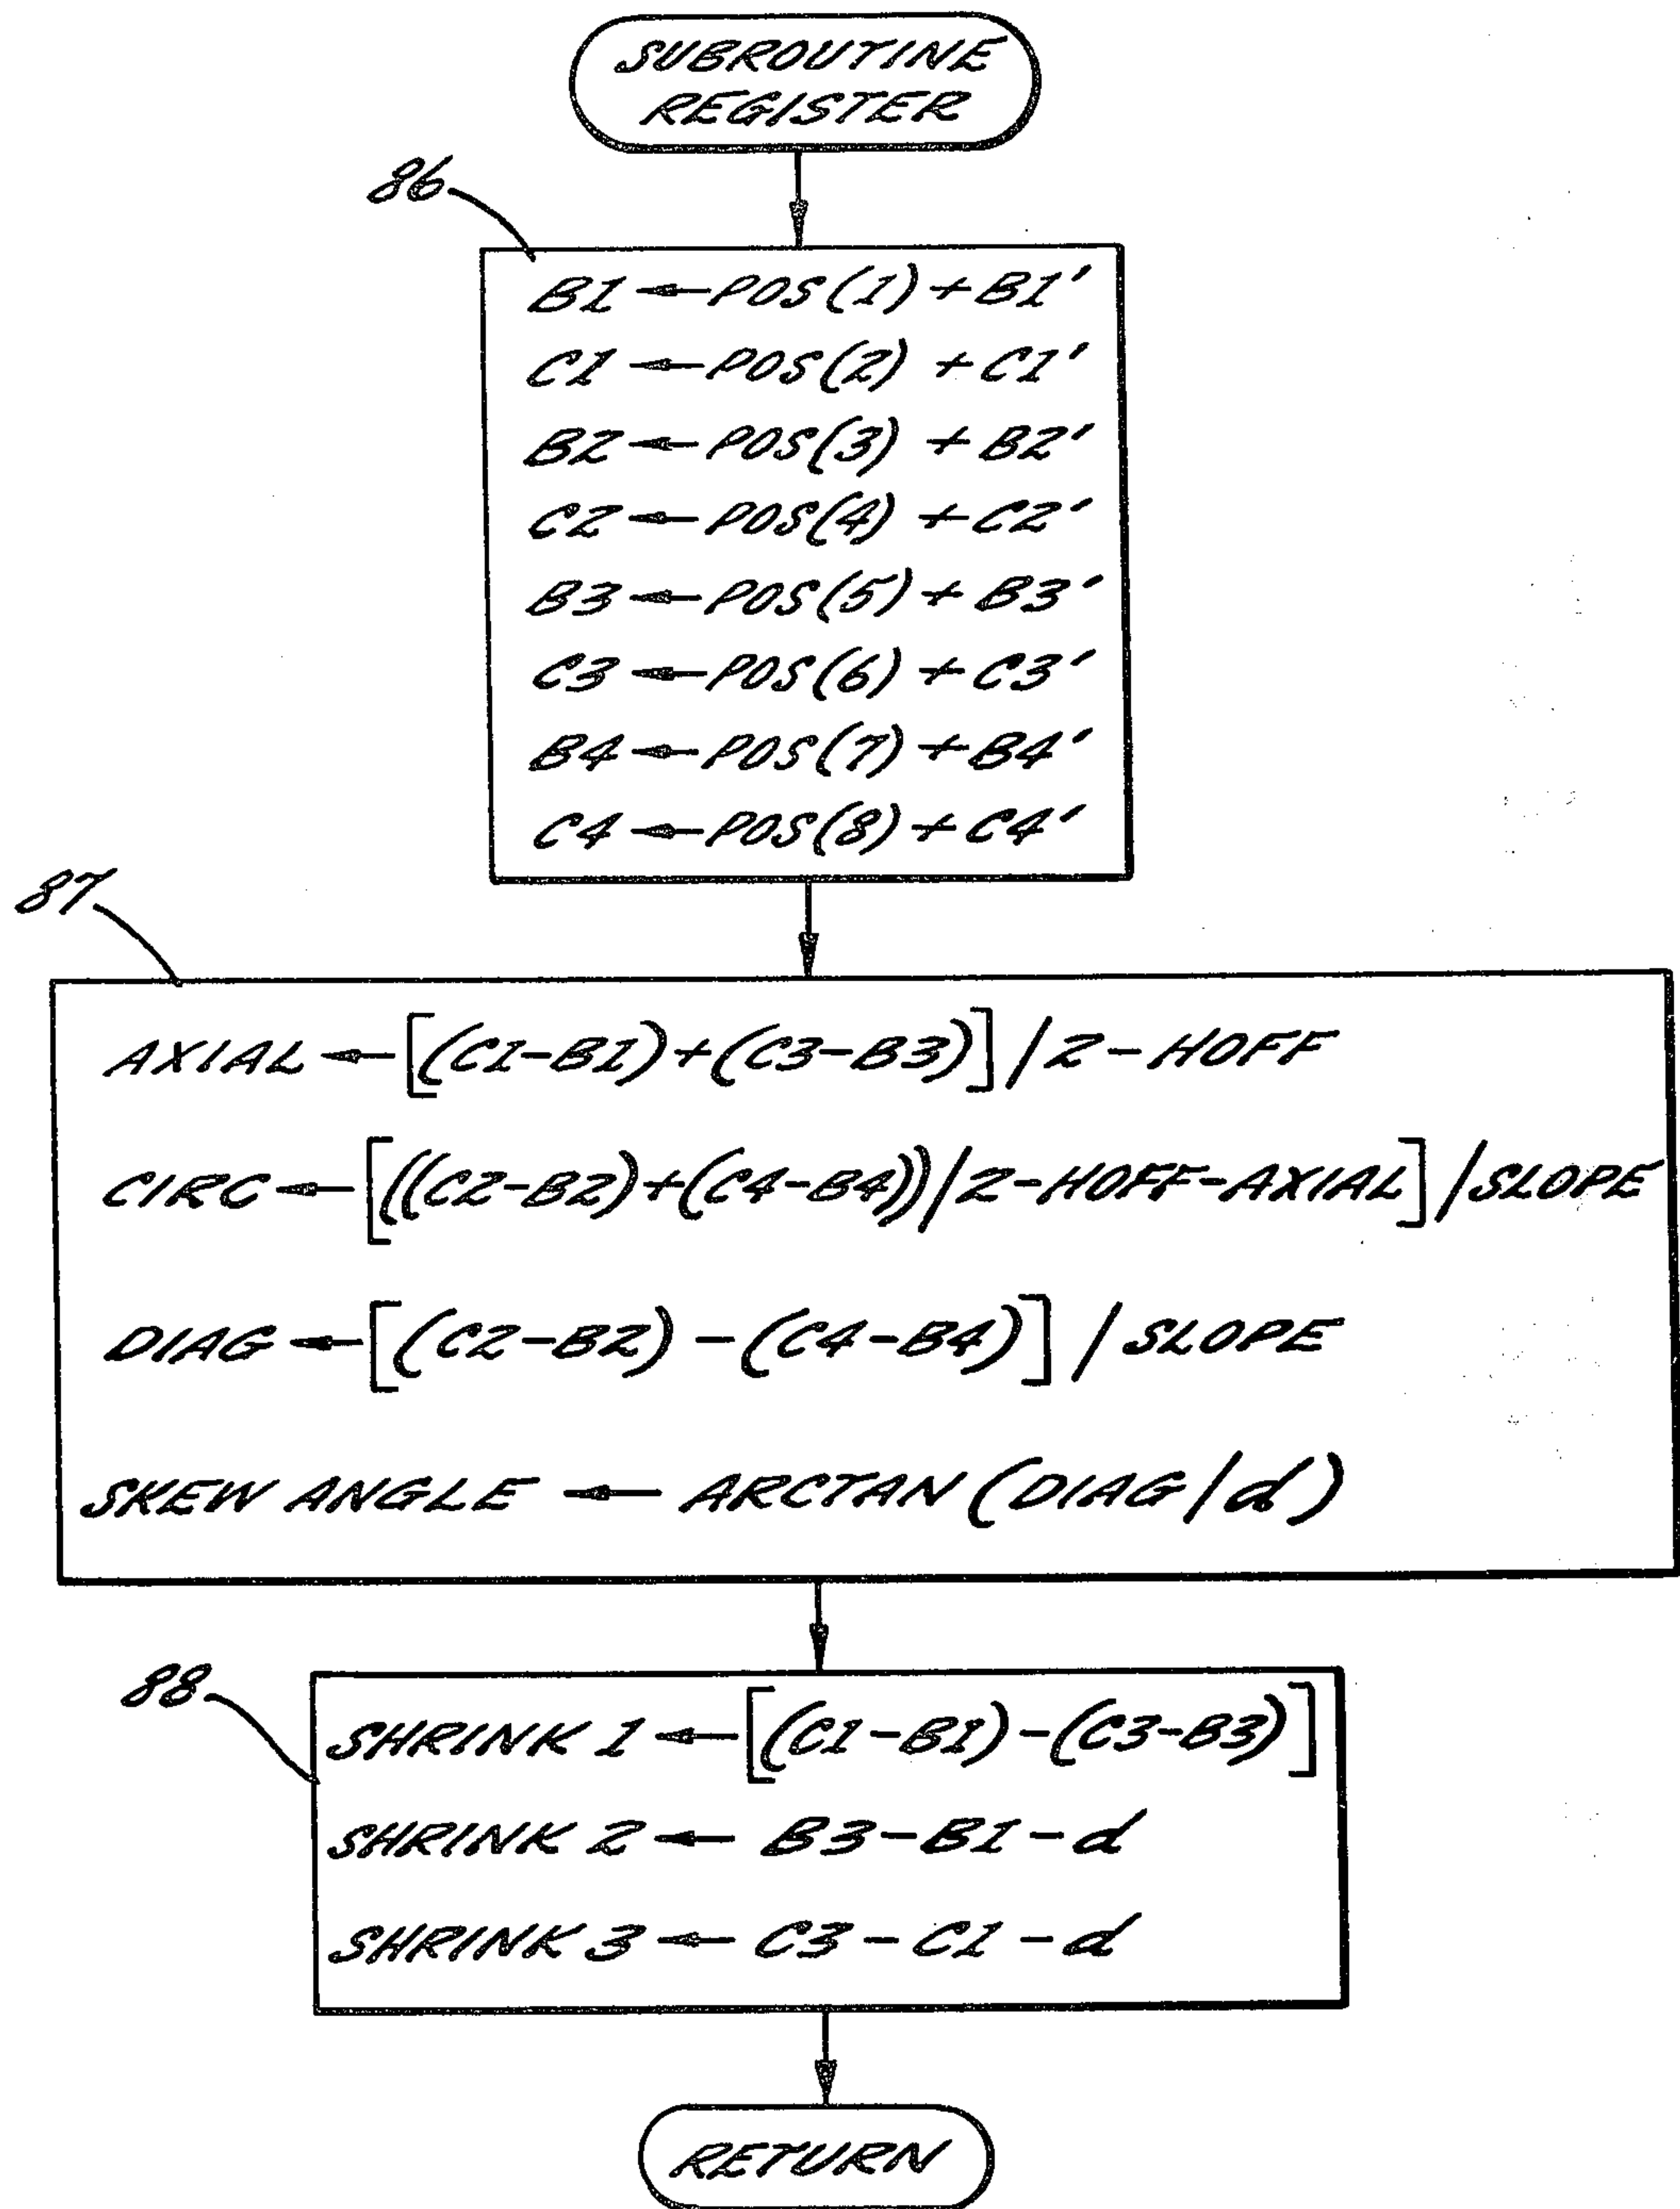 SUBROUTINE
REGISTER
86
B1←POS(1)+B1'
C1←POS(2) +C1'
B2←POS(3) +B2'
C2←POS(4) +C2'
B3←POS(5)+B3'
C3←POS(6)+C3'
B4←POS(7)+B4'
C4←POS(8)+C4'
87
AXIAL←[(C1-B1)+(C3-B3)]/2-HOFF
CIRC←[((C2-B2)+(C4-B4))/2-HOFF-AXIAL]/SLOPE
DIAG←[(C2-B2)-(C4-B4)]/SLOPE
SKEW ANGLE ← ARCTAN(DIAG/d)
88
SHRINK 1←[(C1-B1)-(C3-B3)]
SHRINK 2← B3-B1-d
SHRINK 3← C3-C1-d
RETURN